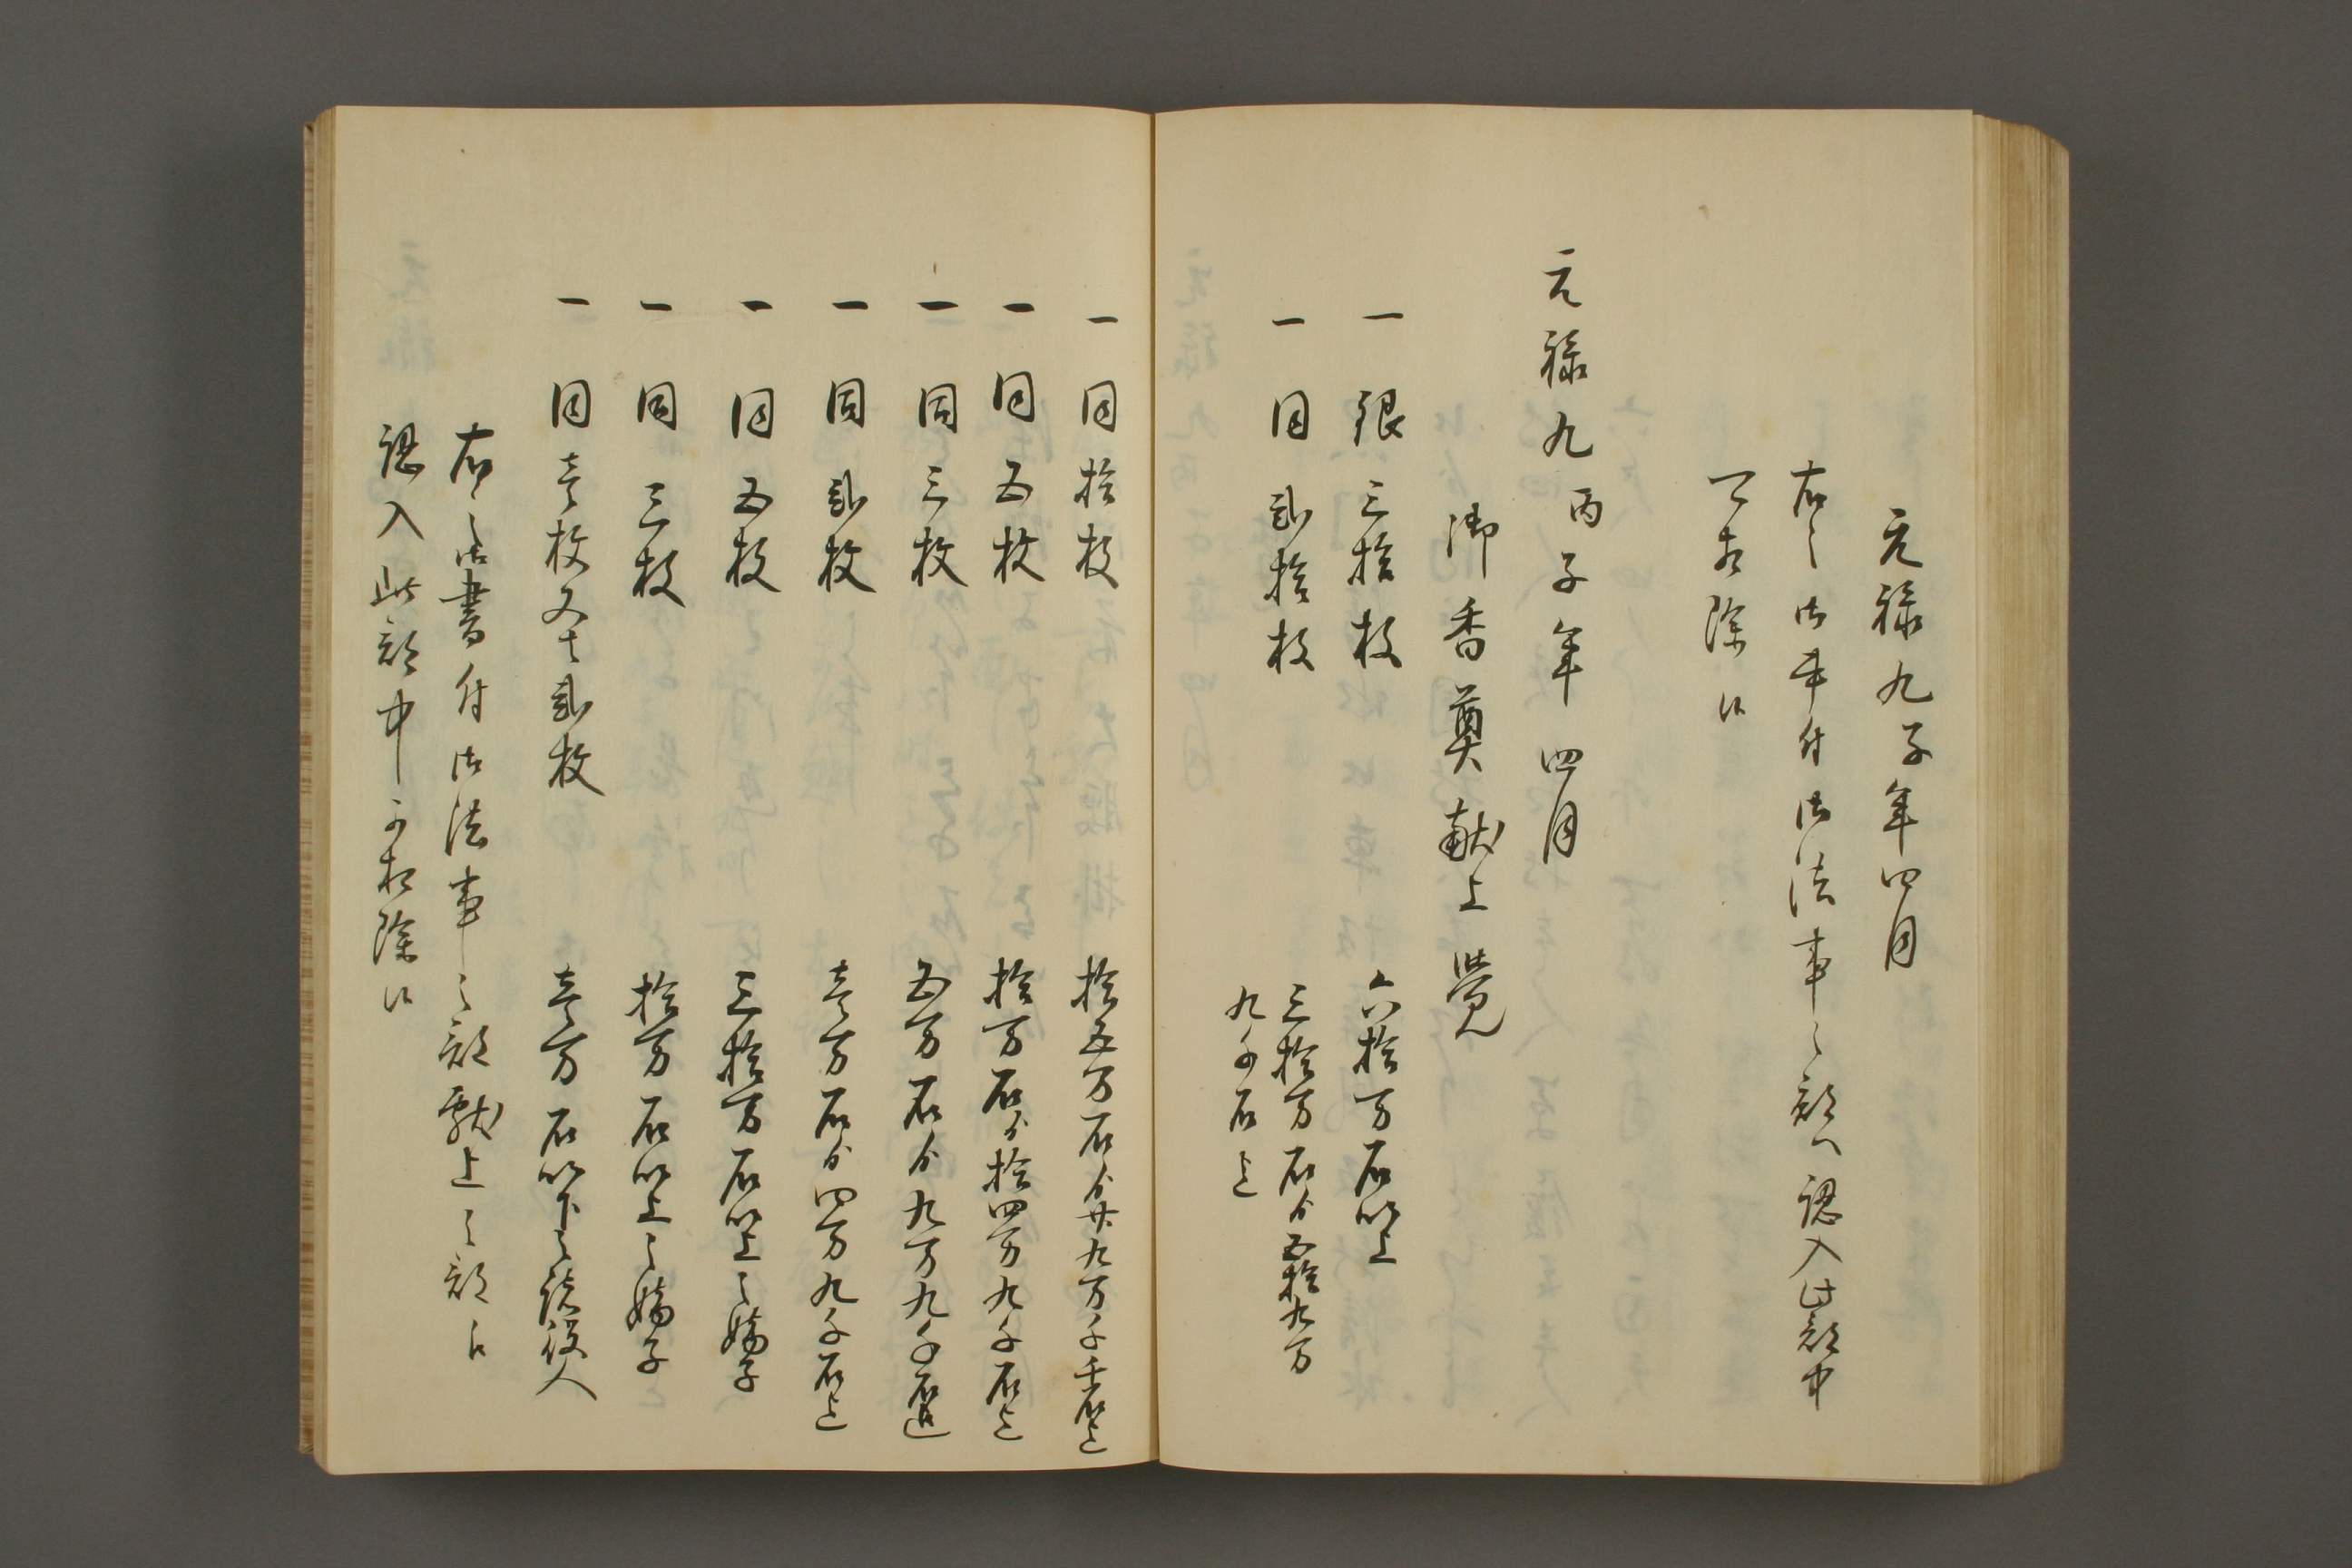 元禄九子年四月
右之御書付御法事之部へ認入此部中
可相除候
元禄九丙子年四月
御香奠献上覚
一 銀三拾枚 六拾万石以上
一 同弐拾枚 三拾万石ゟ五拾九万
九千石迄
一 同拾枚 拾五万石ゟ廿九万千石迄
一 同五枚 拾万石ゟ拾四万九千石迄
一 同三枚 五万石ゟ九万九千石迄
一 同弐枚 壱万石ゟ四万九千石迄
一 同五枚 三拾万石以上之嫡子
一 同三枚 拾万石以上之嫡子
一 同壱枚又は弐枚 壱万石以下之諸役人
右之御書付御法事之部献上之部に
認入此部中可相除候